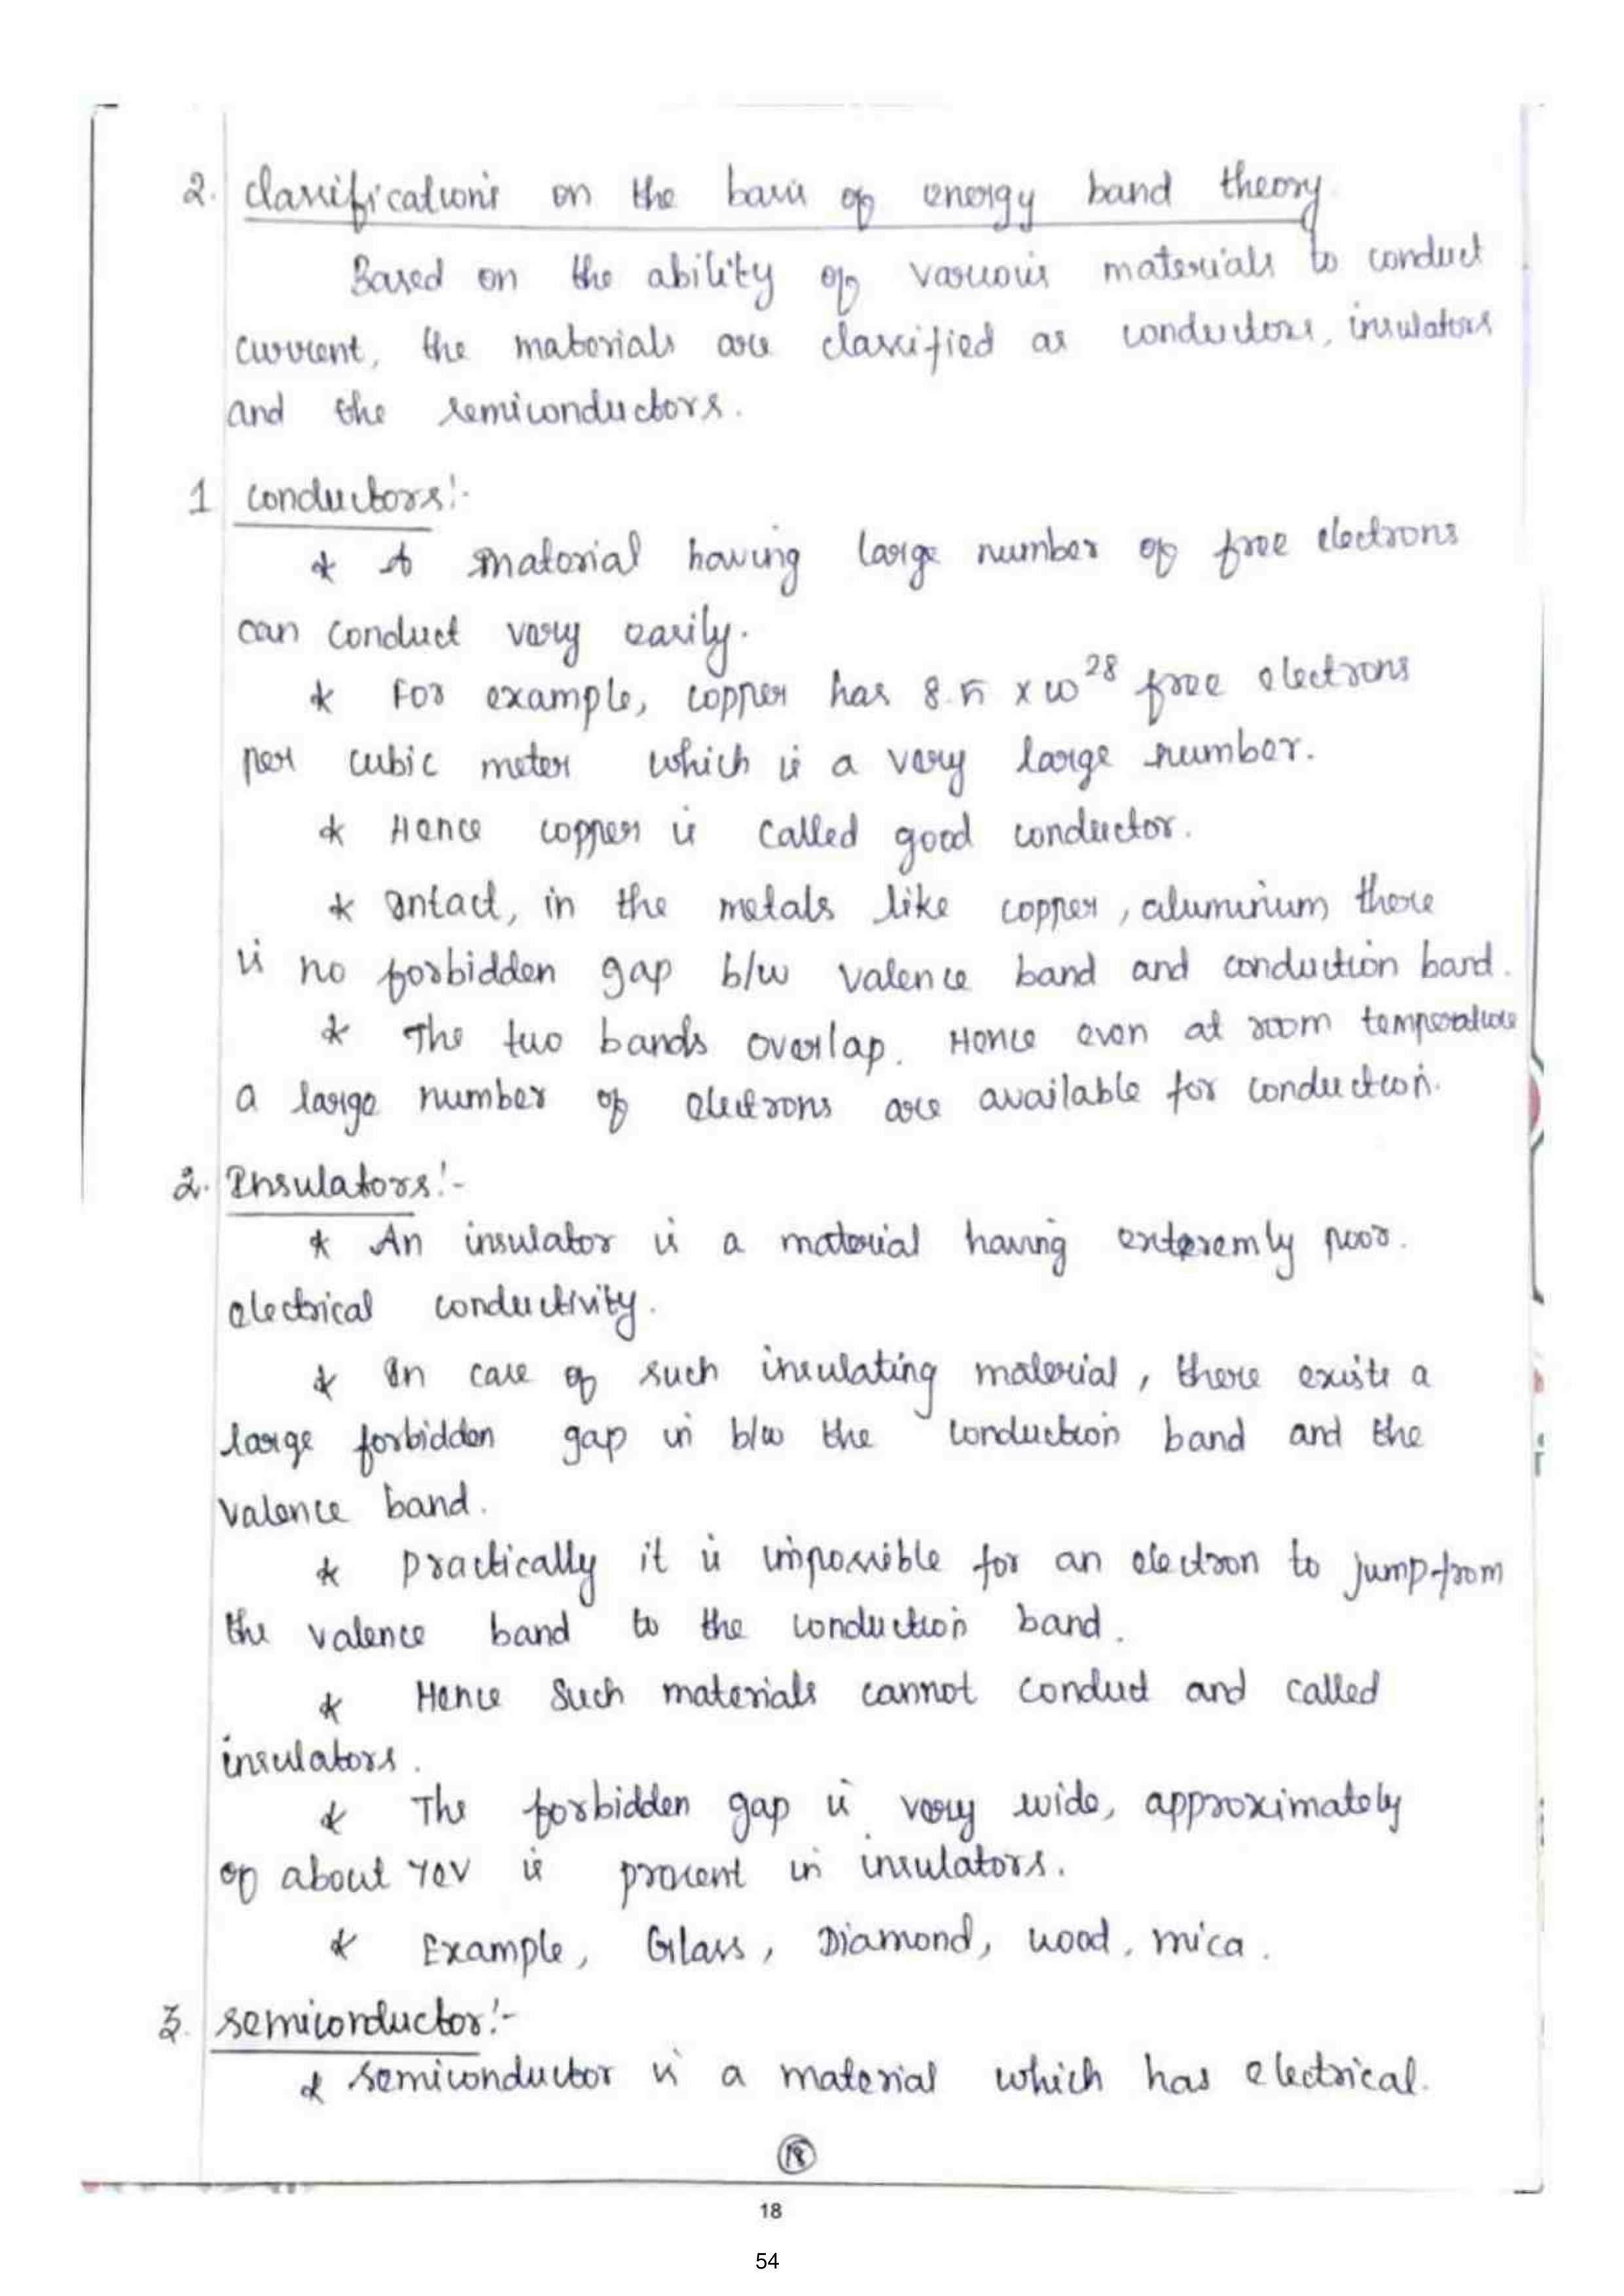 2. classifications on the basis of energy band theory.
Based on the ability of various materials to conduct
current, the materials are classified as conductors, insulators
and the semiconductors.
1 conductors:-
* A material having large number of free electrons
can conduct very easily.
* For example, copper has 8.5 x 10^28 free electrons
per cubic meter which is a very large number.
* Hence copper is called good conductor.
* Intact, in the metals like copper, aluminium there
is no forbidden gap b/w valence band and conduction band.
* The two bands overlap. Hence even at room temperature
a large number of electrons are available for conduction.
2. Insulators:-
* An insulator is a material having exteremly poor.
electrical conductivity.
* In case of such insulating material, there exists a
large forbidden gap in b/w the conduction band and the
valence band.
* Practically it is impossible for an electron to jump from
the valence band to the conduction band.
* Hence such materials cannot conduct and called
insulators.
* The forbidden gap is very wide, approximately
of about 7eV is present in insulators.
* Example, Glass, Diamond, wood, mica.
3. semiconductor:-
* semiconductor is a material which has electrical.
18
18
54